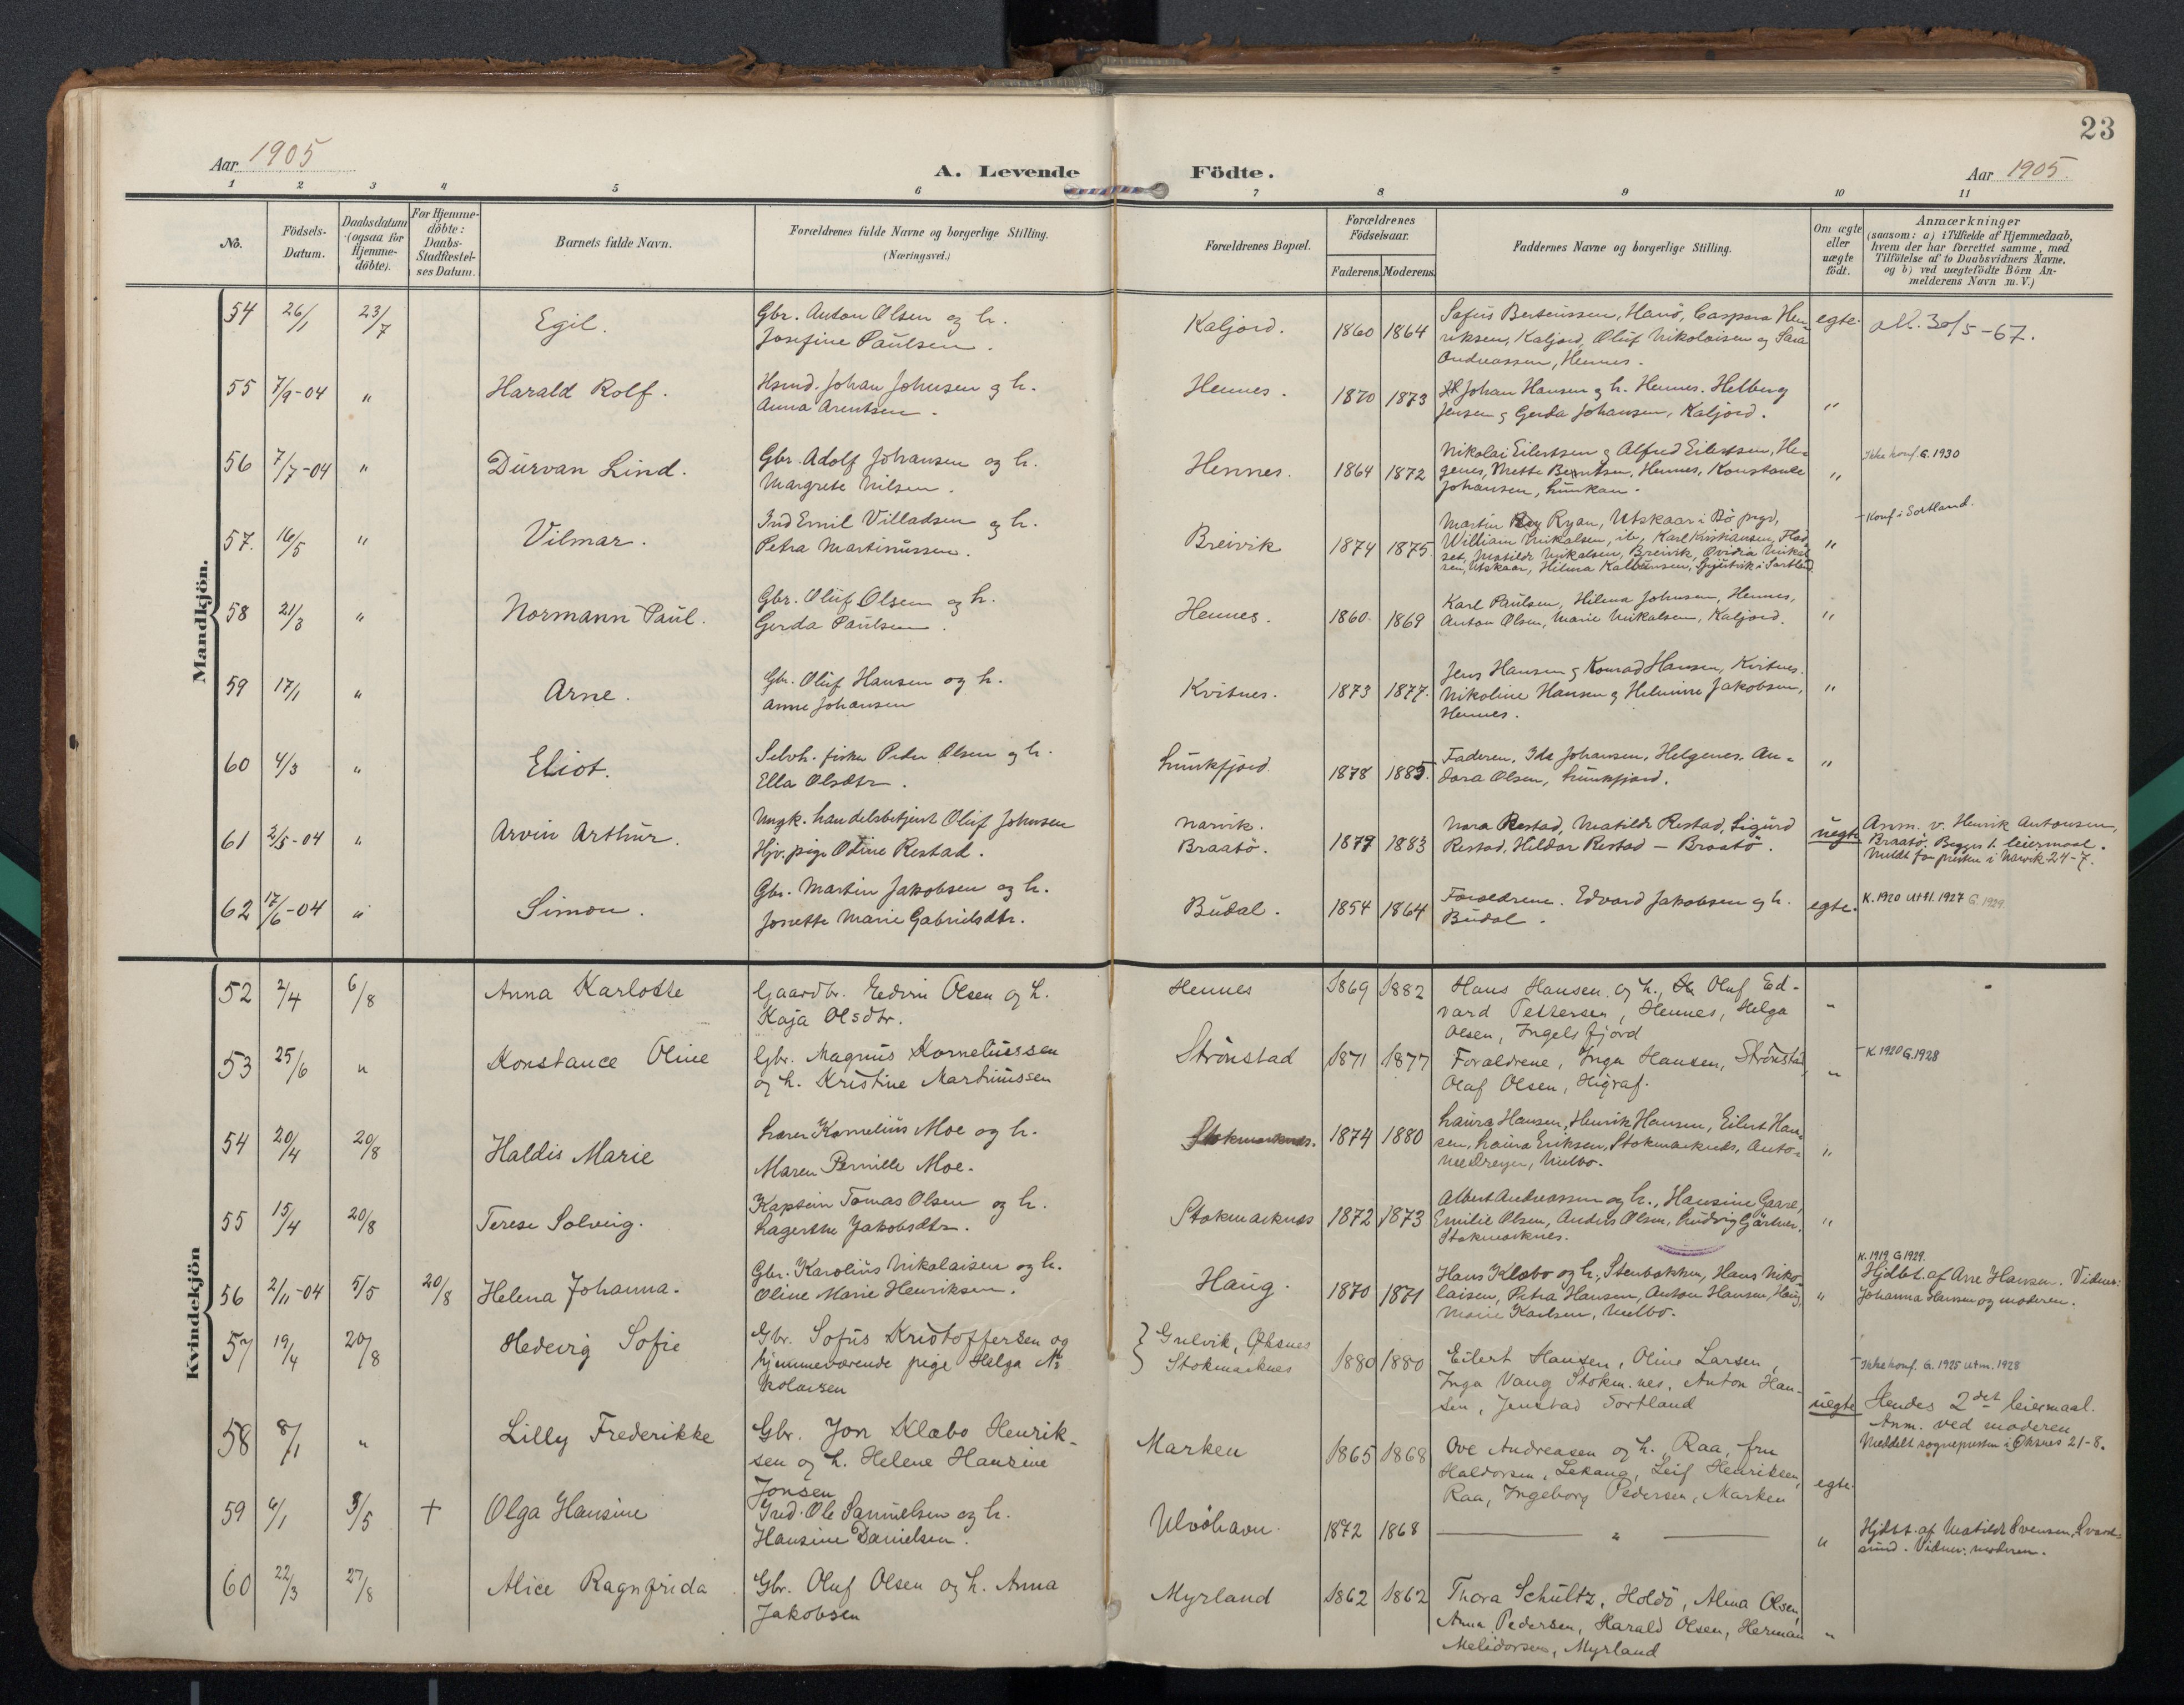 23
Aar 1905
A. Levende Födte.
Aar 1905.
1 2 3 4 5 6 7 8 9 10 11
No.
Födsels-Datum.
Daabsdatum (ogsaa for Hjemmedöbte).
For Hjemmedöbte: Daabs-Stadfæstelses Datum.
Barnets fulde Navn.
Forældrenes fulde Navne og borgerlige Stilling.
(Næringsvei.)
Forældrenes Bopæl.
Forældrenes Födselsaar.
Faderens. Moderens.
Faddernes Navne og borgerlige Stilling.
Om ægte eller uægte födt.
Anmærkninger
(saasom: a) i Tilfælde af Hjemmedaab,
hvem der har forrettet samme, med
Tilföielse af to Daabsvidners Navne,
og b) ved uægtefödte Börn An-
melderens Navn m. V.)
Mandkjön.
54 26/1 23/7 Egil. Gbr. Anton Olsen og h.
Josefine Paulsen.
Kaljord. 1860 1864
Sofus Berteussen, Hanö, Caspara Hen
riksen, Kaljord, Oluf Nikolaisen og Sara
Andreassen, Hennes.
egte. 30/5-67.
55 7/9-04 " Harald Rolf. Hsmd. Johan Johnsen og h.
Anna Arentsen.
Hennes. 1870 1873
Johan Hansen og h. Hennes. Helberg
Jensen og Gerda Johansen, Kaljord.
"
56 7/7-04 " Durvan Lind. Gbr. Adolf Johansen og h.
Margrete Nilsen.
Hennes. 1864 1872
Nikolai Eilertsen og Alfred Eilertsen, Hel
genes, Mette Berntsen, Hennes, Konstanse
Johansen, Lunkan.
" Ikke konf. G. 1930
57. 16/5 " Vilmar. Ind Emil Villadsen og h.
Petra Martinussen.
Breivik 1874 1875.
Martin Ryan, Utskaar i Bö prgd,
William Mikalsen, ib, Karl Kristiansen, Flad
set, Matilde Mikalsen, Breivik, Ovidia Mikal
sen, Utskaar, Hilma
" Konf. i Sortland.
58 21/3 " Normann Paul. Gbr. Oluf Olsen og h.
Gerda Paulsen.
Hennes. 1860 1869
Karl Paulsen, Hilma Johnsen, Hennes,
Anton Olsen, Marie Mikalsen, Kaljord.
"
59 17/1 " Arne. Gbr. Oluf Hansen og h.
Anne Johansen
Kvitnes. 1873 1877.
Jens Hansen og Konrad Hansen, Kvitnes.
Nikoline Hansen og Helmine Jakobsen,
Hennes.
"
60 4/3 " Eliot. Selvh. fisker Peder Olsen og h.
Ella Olsdtr.
Lunkfjord. 1878 1885.
Faderen, Ida Johansen, Helgenes. An=
dora Olsen, Lunkfjord.
"
61 2/5-04 " Arvin Arthur. Ungk. handelsbetjent Oluf Johnsen
Hjv. pige Odine Restad.
Narvik.
Braatö. 1877 1883
Nora Restad, Matilde Restad, Sigurd
Restad, Hildar Restad — Braatö.
uegte Anm. v. Henrik Antonsen,
Braatö. Begges 1. leiermaal.
Meldt for presten i Narvik 24-7.
62 17/6-04 " Simon. Gbr. Martin Jakobsen og h.
Josette Marie Gabrielsdtr.
Budal. 1854 1864
Forældrene. Edvard Jakobsen og h.
Budal.
egte. K. 1920 Utfl. 1927 G. 1929.
Kvindekjön
52 2/4 6/8 Anna Karlotte Gaardbr. Edvin Olsen og h.
Kaja Olsdtr.
Hennes 1869 1882
Hans Hansen og h., Oluf Ed-
vard Pettersen, Hennes, Helga
Olsen, Ingelsfjord
"
53 25/6 " Konstance Oline Gbr. Magnus Korneliussen
og h. Kristine Martinussen
Strönstad 1871 1877
Forældrene, Inga Hansen, Strönstad,
Olaf Olsen, Higraf.
" K. 1920 G. 1928
54 20/4 20/8 Haldis Marie Lærer Kornelius Moe og h.
Maren Pernille Moe.
Stokmarknes. 1874 1880
Laura Hansen, Henrik Hansen, Eilert Han=
sen, Laura Eriksen, Stokmarknes, Anto=
nie Dreyer, Melbo.
"
55 15/4 20/8 Terese Solveig. Kaptein Tomas Olsen og h.
Lagerthe Jakobsdtr.
Stokmarknes 1872 1873
Albert Andreassen og h., Hansine Gaare,
Emilie Olsen, Anders Olsen, Ludvig Gärtner,
Stokmarknes.
"
56 2/11-04 5/5 20/8 Helena Johanna. Gbr. Karolius Nikolaisen og h.
Oline Marie Henriksen.
Haug. 1870 1871
Hans Klæbo og h., Stenbakken, Hans Niko=
laisen, Petra Hansen, Anton Hansen, Haug,
Marie Karlsen, Melbo.
" K. 1919 G 1929.
Hjdbt. af Ane Hansen. Vidner:
Johanna Hansen og moderen.
57 19/4 20/8 Hedevig Sofie Gbr. Sofus Kristoffersen og
hjemmeværende pige Helga Ni
kolaisen
Grelvik, Öksnes
Stokmarknes 1880 1880
Eilert Hansen, Oline Larsen,
Inga Vang Stokm.nes, Anton Han-
sen, Jenstad Sortland
uegte Ikke konf. G. 1925 utm. 1928
Hendes 2det leiermaal.
Anm. ved moderen
Meddelt sognepresten i Öksnes 21-8.
58 8/1 " Lilly Frederikke Gbr. Jon Klæbo Henrik-
sen og h. Helene Hansine
Jonsen
Marken 1865 1868
Ove Andreasen og h. Raa, fru
Haldorsen, Lekang, Leif Henriksen,
Raa, Ingeborg Pedersen, Marken
egte.
59 6/1 3/5 + Olga Hansine Ind. Ole Samuelsen og h.
Hansine Danielsen.
Ulvöhavn. 1872 1868
— " —
" Hjdbt. af Matilde Svensen, Svard=
sund. Vidner: moderen.
60 22/3 27/8 Alice Ragnfrida Gbr. Oluf Olsen og h. Anna
Jakobsen
Myrland 1862 1862
Thora Schultz, Holdö, Alma Olsen,
Anna Pedersen, Harald Olsen, Herman
Melidorsen, Myrland
"